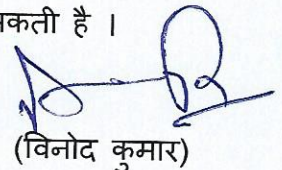 कती है ।
(विनोद कुमार)